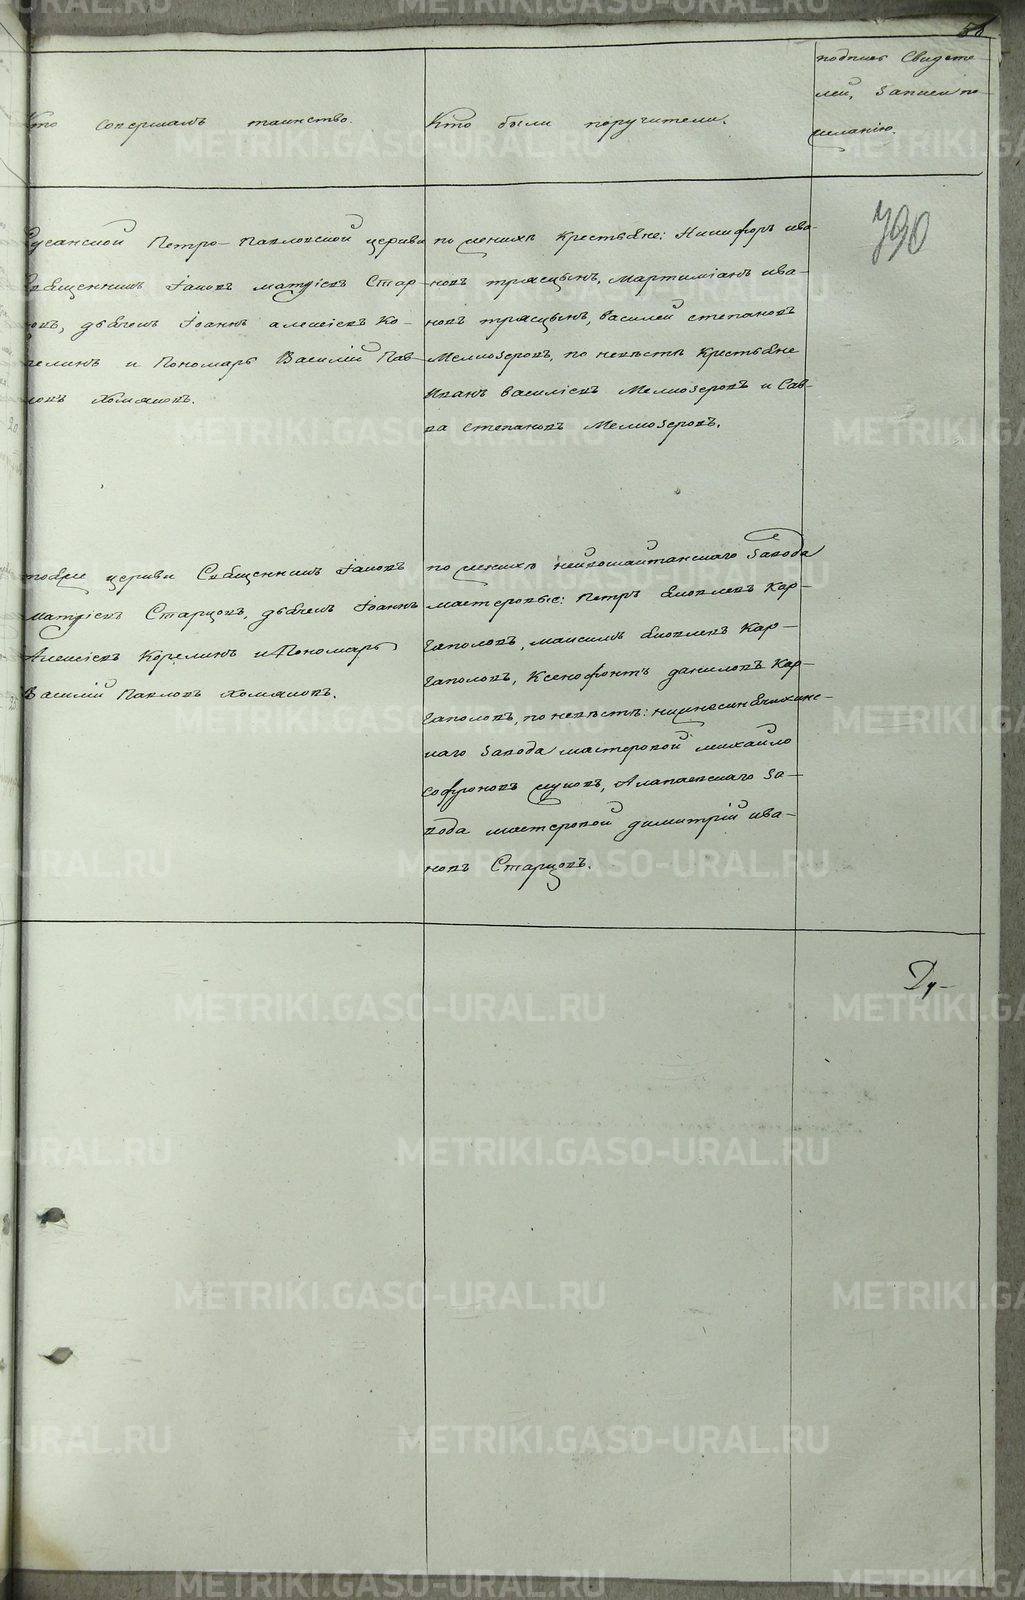 58
Кто совершалъ таинство.
Кто были поручители.
подпись свидете-
лей, записи по
желанію.
790
Сусанской Петро-Павловской церкви
Священникъ Іаковъ матѳіевъ Стар-
цовъ, дьячекъ Іоаннъ алексіевъ Ко-
релинъ и Пономарь Василій Пав-
ловъ Хомяковъ.
по женихѣ крестьяне: Никифоръ ива-
новъ трясцынъ, мартиміанъ ива-
новъ трясцынъ, василей степановъ
Мелкозеровъ, по невѣстѣ крестьяне
Иванъ василіевъ Мелкозеровъ и Сав-
ва степановъ Мелкозеровъ.
тояже церкви Священникъ Іаковъ
матѳіевъ Старцовъ, дьячекъ Іоаннъ
Алексіевъ Корелинъ и Пономарь
Василій Павловъ Хомяковъ.
по женихѣ нейвошайтанскаго завода
мастеровые: Петръ яковлевъ Кар-
гаполовъ, максимъ яковлевъ Кар-
гаполовъ, Ксенофонтъ даниловъ Кар-
гаполовъ, по невѣстѣ: нижнесинячихинс-
каго завода мастеровой михайло
софроновъ жуковъ, Алапаевскаго за-
вода мастеровой димитрій ива-
новъ Старцовъ.
Ду-
METRIKI.GASO-URAL.RU